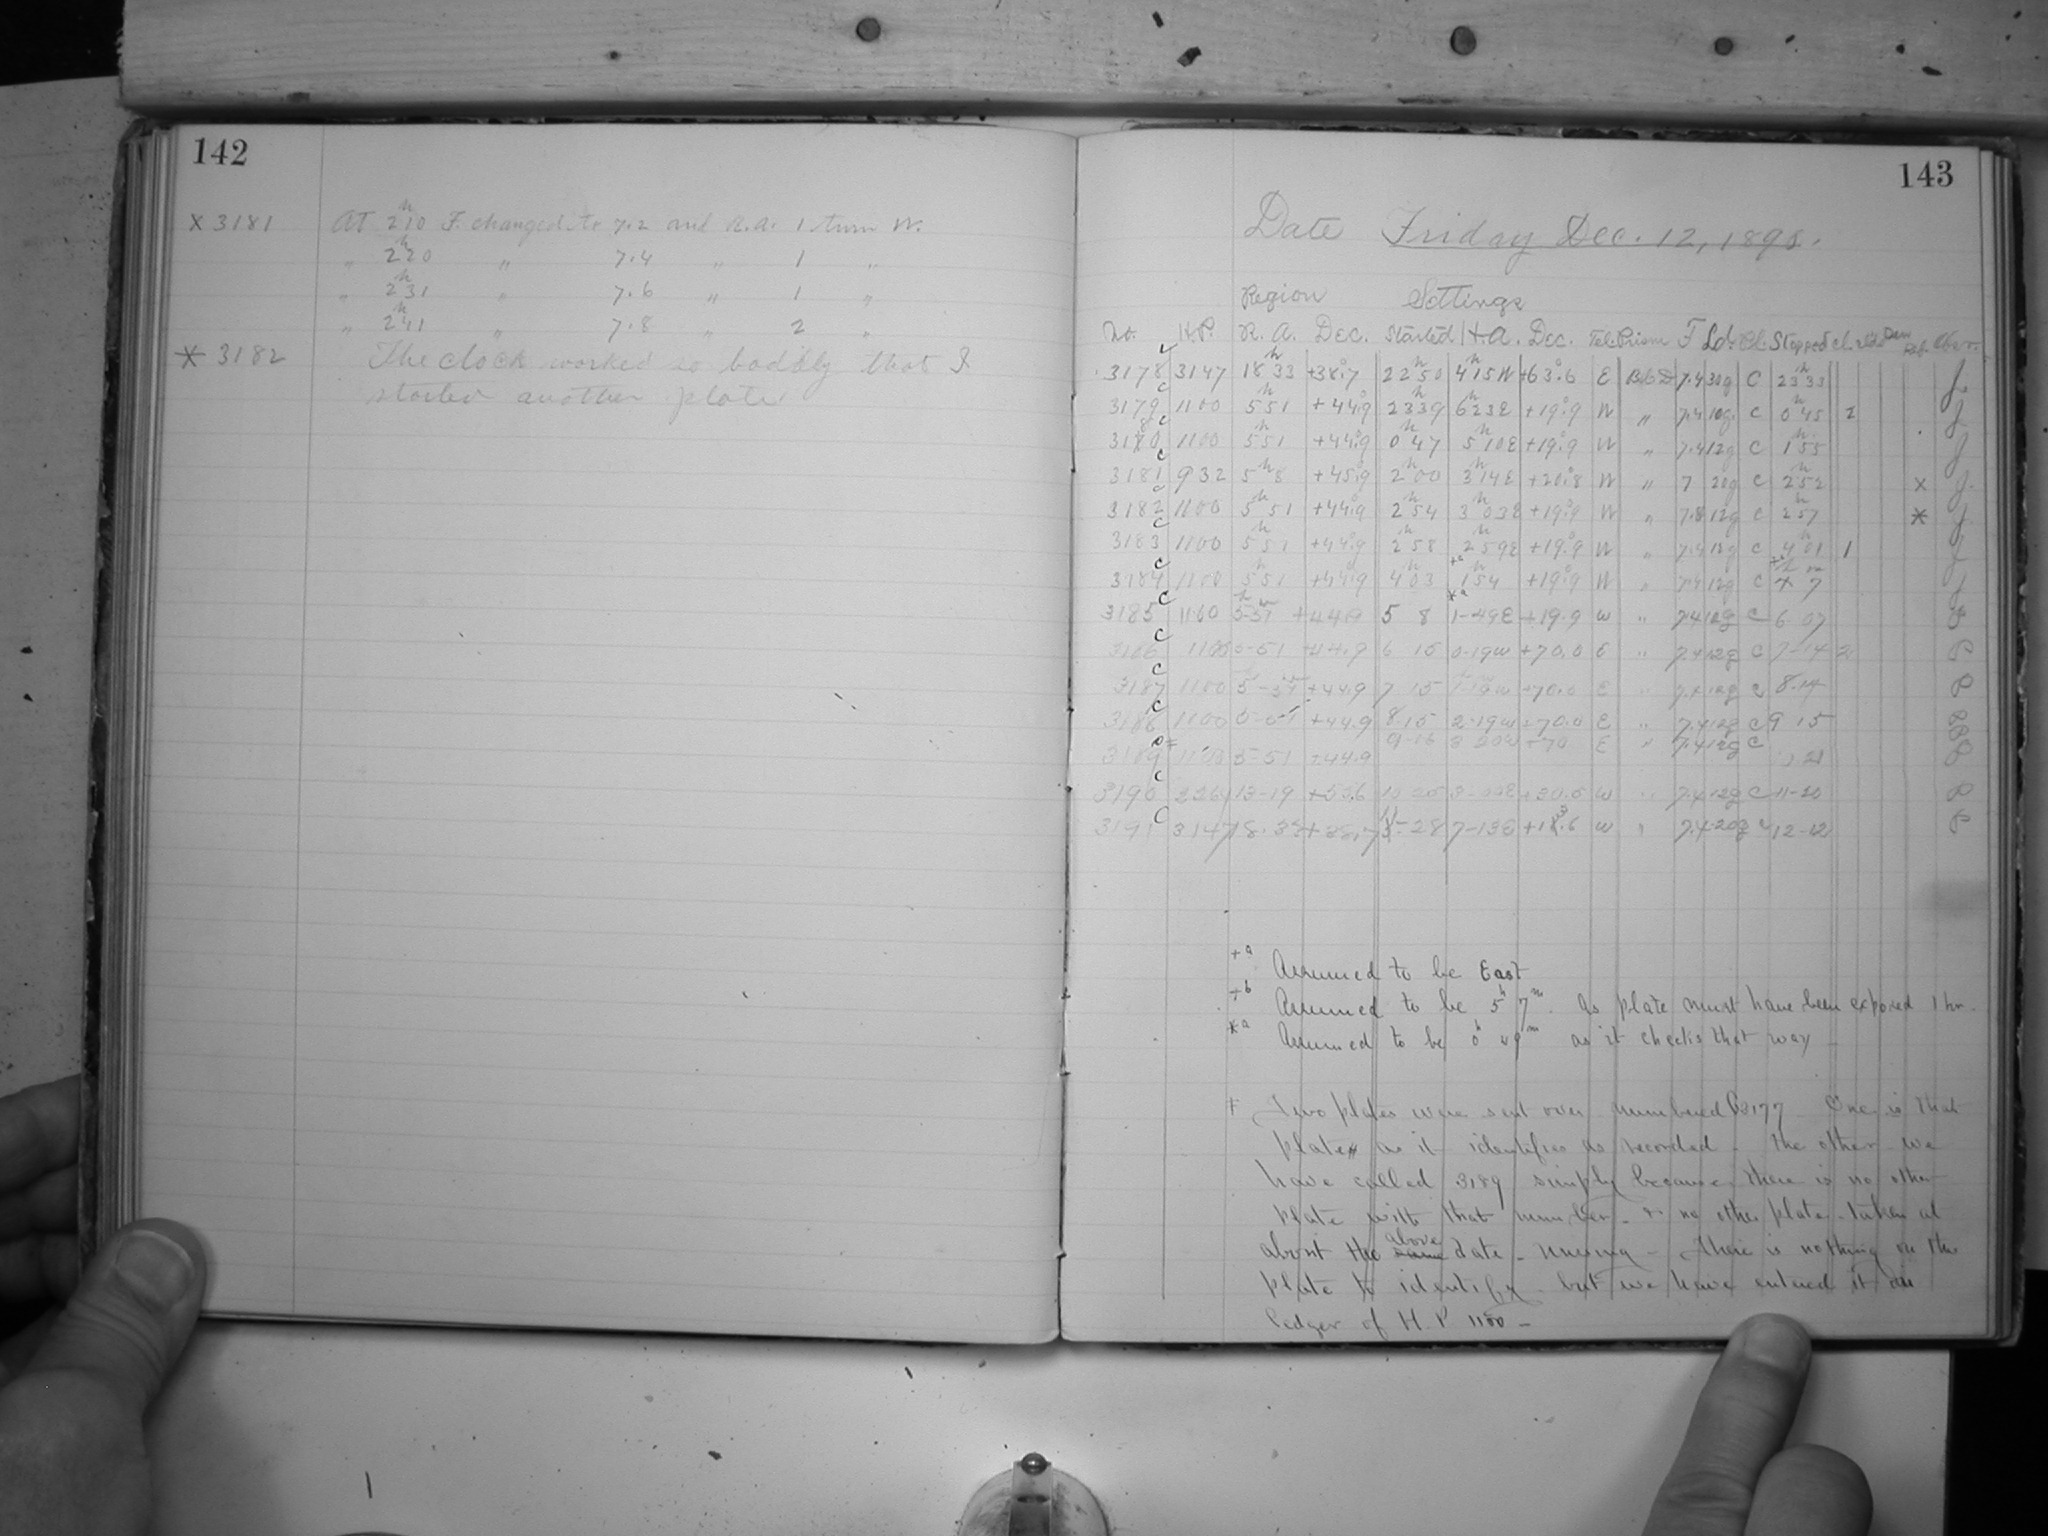 142
x 3181 At 2h10 F. changed to 7.2 and R.A. 1 turn W.
" 2h20 " 7.4 " 1 "
" 2h31 " 7.6 " 1 "
" 2h41 " 7.8 " 2 "
* 3182 The clock worked so baddly that I
started another plate
143
Date Friday Dec. 12, 1890.
Region Settings
No. H.P. R. A. Dec. Started H.A. Dec. Tel. Prism F Ld. Cl. Stopped Cl. Obser.
3178 3147 18h33 +38°.7 22h50 4h15W +63°.6 E 7.4 30g C 23h33 J
3179 1100 5h51 +44°.9 23h39 6h23E +19°.9 W " 7.4 10g C 0h45 2 J
3180 1100 5h51 +44°.9 0h47 5h10E +19°.9 W " 7.4 12g C 1h55 J
3181 932 5h8 +45°.9 2h00 3h14E +20°.8 W " 7 20g C 2h52 x J
3182 1100 5h51 +44°.9 2h54 3h03E +19°.9 W " 7.8 12g C 2h57 * J
3183 1100 5h51 +44°.9 2h58 2h59E +19°.9 W " 7.4 12g C 4h01 1 J
3184 1100 5h51 +44°.9 4h03 +a 1h54 +19°.9 W " 7.4 12g C +b 7 J
3185 1100 +44.9 5 8 *a 1-49E +19.9 W " 7.4 12g C 6 07
3186 1100 5-51 +44.9 6 15 0-19W +70.0 E " 7.4 12g C 7-14 2
3187 1100 5-51 +44.9 7 15 1-19W +70.0 E " 7.4 12g C 8.14
3188 1100 5-51 +44.9 8-15 2-19W +70.0 E " 7.4 12g C 9 15
3189 ‡ 1100 5-51 +44.9 9-16 3 20W +70 E " 7.4 12g C
3190 13-19 W " 7.4 12g C 11-20
3191 3147 18.33 +38.7 -28 7-13E W " 7.4 20g C 12-12
+a Assumed to be East
+b Assumed to be 5h 7m. as plate must have been exposed 1 hr.
*a Assumed to be 0h 49m as it checks that way
‡ Two plates were sent over numbered B3177. One is that
plate as it identifies as recorded - the other we
have called 3189 simply because there is no other
plate with that number - & no other plate taken at
about the above date - missing - There is nothing on the
plate to identify but we have entered it in
ledger of H.P 1100 -